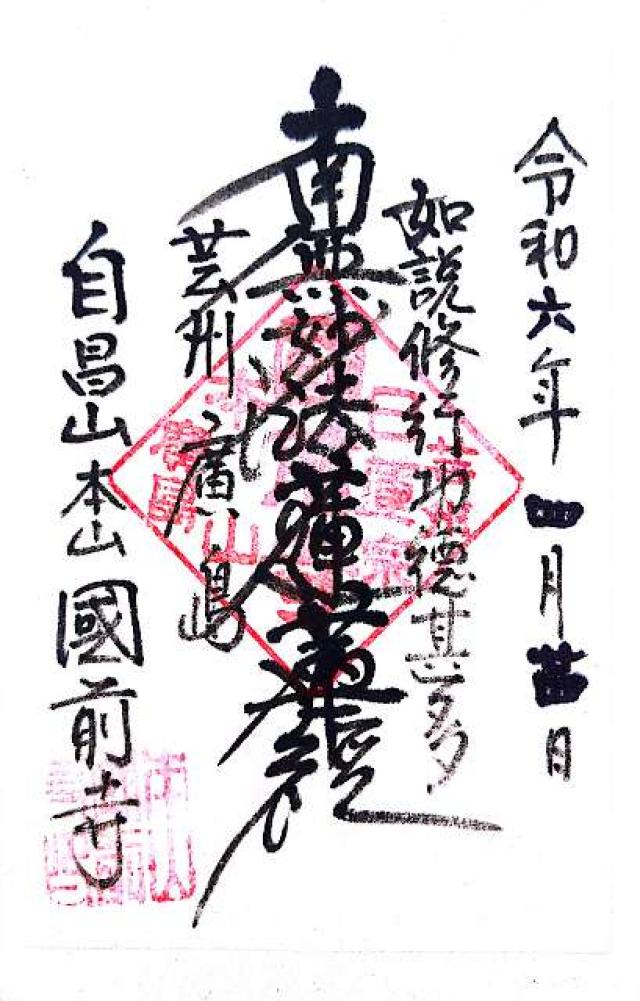 令和六年四月廿四日
如説修行功徳甚多
南無妙法蓮華經
芸州廣島
自昌山本山國前寺
日蓮宗